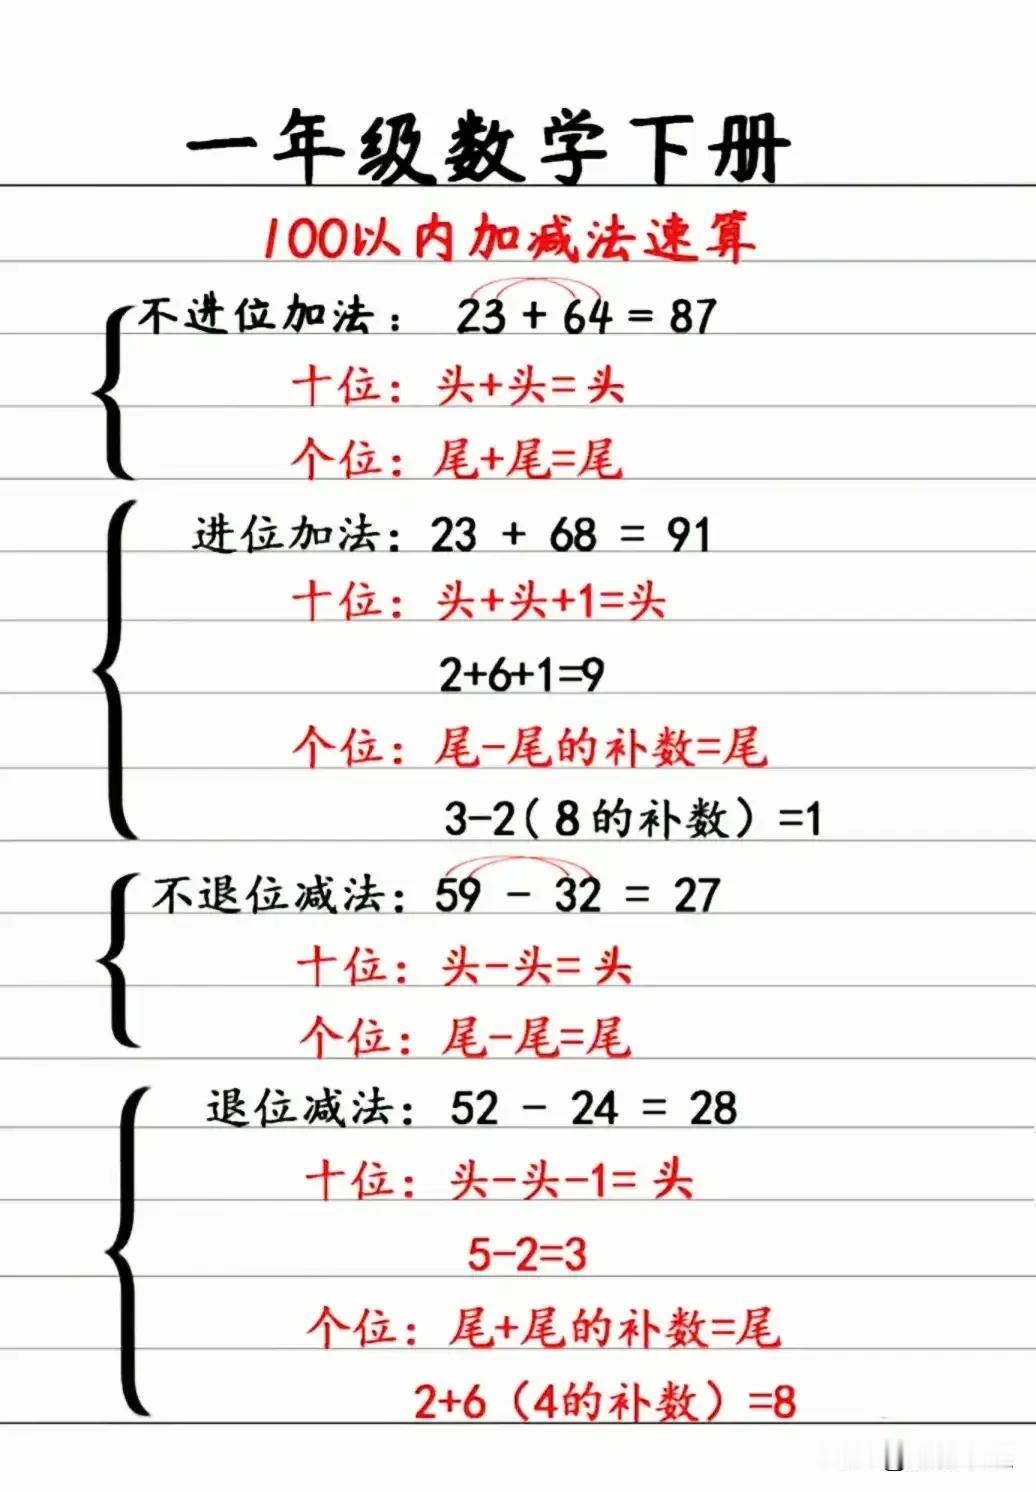 一年级数学下册
100以内加减法速算
不进位加法： 23 + 64 = 87
十位：头+头=头
个位：尾+尾=尾
进位加法：23 + 68 = 91
十位：头+头+1=头
2+6+1=9
个位：尾-尾的补数=尾
3-2（8的补数）=1
不退位减法：59 - 32 = 27
十位：头-头=头
个位：尾-尾=尾
退位减法：52 - 24 = 28
十位：头-头-1=头
5-2=3
个位：尾+尾的补数=尾
2+6（4的补数）=8